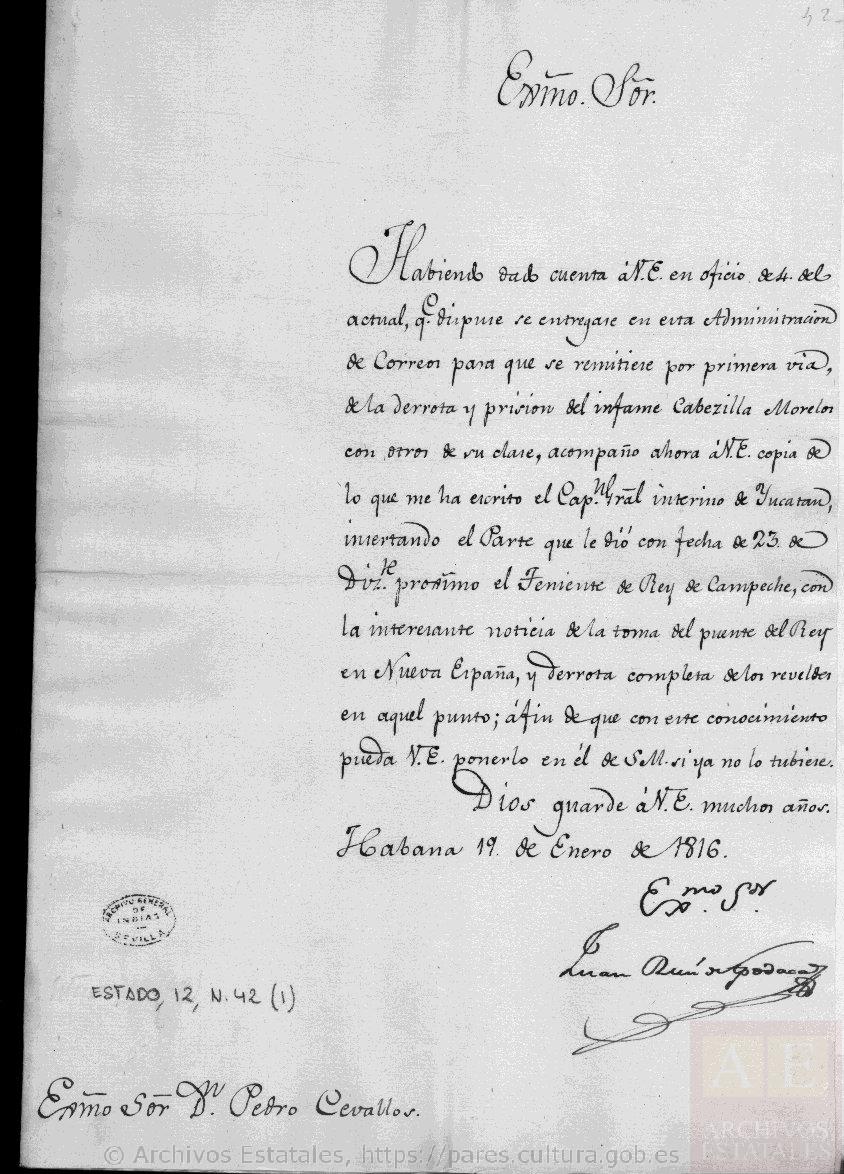 42
Exmo. Sor.
Habiendo dado cuenta á V.E. en oficio de 4. del
actual, qe. dispuse se entregase en esta Administracion
de Correos para que se remitiese por primera via,
de la derrota y prision del infame Cabezilla Morelos
con otros de su clase, acompaño ahora á V.E. copia de
lo que me ha escrito el Capn. Gral interino de Yucatan,
insertando el Parte que le dió con fecha de 23. de
Dizre. proximo el Teniente de Rey de Campeche, con
la interesante noticia de la toma del puente del Rey
en Nueva España, y derrota completa de los reveldes
en aquel punto; á fin de que con este conocimiento
pueda V.E. ponerlo en él de S.M. si ya no lo tubiese.
Dios guarde á V.E. muchos años.
Habana 19. de Enero de 1816.
Exmo. Sor.
Juan Ruiz de Apodaca
ARCHIVO GENERAL
DE
INDIAS
SEVILLA
ESTADO, 12, N. 42 (1)
Exmo Sor Dn. Pedro Cevallos.
AE
ARCHIVOS
ESTATALES
© Archivos Estatales, https://pares.cultura.gob.es